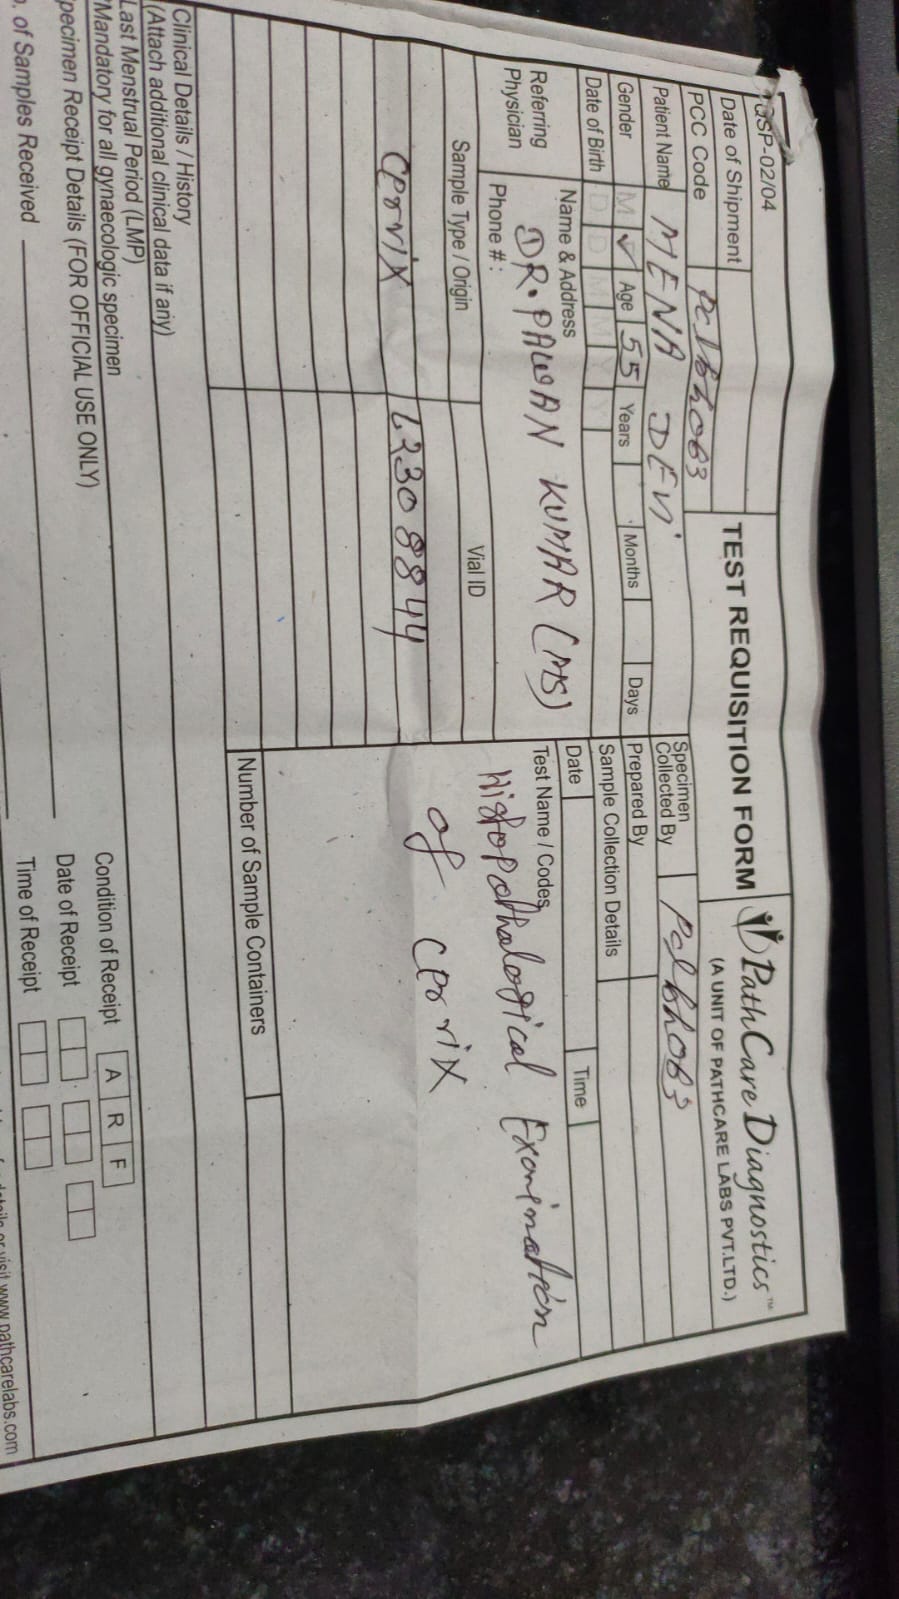 QSP-02/04
TEST REQUISITION FORM
PathCare Diagnostics™
(A UNIT OF PATHCARE LABS PVT.LTD.)
Date of Shipment
PCC Code
Specimen Collected By
Patient Name MENA DEVI
Prepared By
Gender M ✓ Age 55 Years Months Days
Sample Collection Details
Date of Birth D D M M Y Y
Date Time
Referring Physician
Name & Address
DR. PAWAN KUMAR (MS)
Phone #:
Test Name / Codes
Histopothalogical Exominotion
of Cervix
Sample Type / Origin Vial ID
Cervix L2308844
Number of Sample Containers
Clinical Details / History
(Attach additional clinical data if any)
Last Menstrual Period (LMP)
*Mandatory for all gynaecologic specimen
Specimen Receipt Details (FOR OFFICIAL USE ONLY)
Condition of Receipt A R F
Date of Receipt
of Samples Received
Time of Receipt
details or visit www.pathcarelabs.com